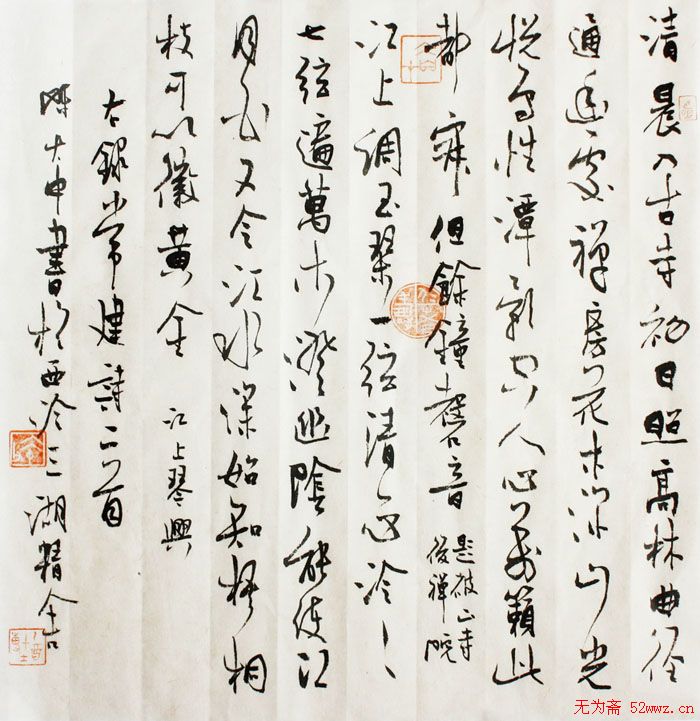 清晨入古寺初日照高林曲径
通幽處禅房花木深山光
悦鸟性潭影空人心万籁此
都寂但餘鐘磬音 题破山寺
後禅院
江上调玉琴一弦清一心泠〻
七弦遍萬木澄幽陰能使江
月白又令江水深始知梧桐
枝可以徽黄金 江上琴興
右録常建詩二首
大申書於西泠三湖精舍
无为斋 52wwz.cn